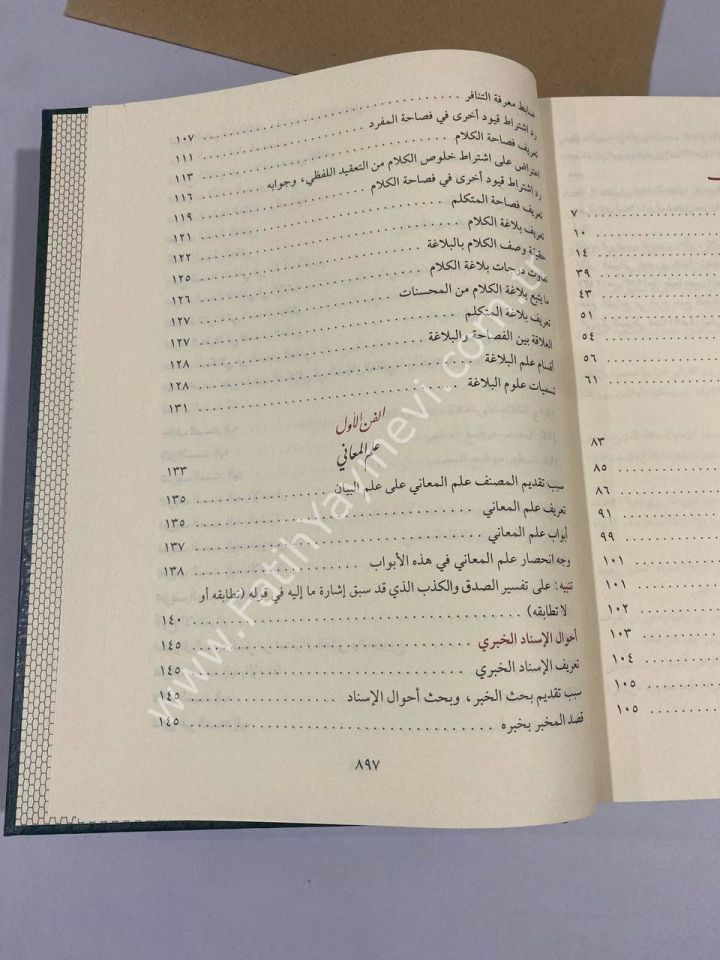 ٧
١٠
١٤
٣٩
٤٣
٥١
٥٤
٥٦
٦١
٨٣
٨٥
٨٦
٩١
٩٩
١٠١
١٠١
١٠٢
١٠٣
١٠٤
١٠٥
١٠٥
ضابط معرفة التنافر ١٠٧
رد اشتراط قيود أخرى في فصاحة المفرد ١١١
تعريف فصاحة الكلام ١١٣
اعتراض على اشتراط خلوص الكلام من التعقيد اللفظي، وجوابه ١١٦
رد اشتراط قيود أخرى في فصاحة الكلام ١١٩
تعريف فصاحة المتكلم ١٢١
تعريف بلاغة الكلام ١٢٢
حقيقة وصف الكلام بالبلاغة ١٢٥
تفاوت درجات بلاغة الكلام ١٢٦
ما يتبع بلاغة الكلام من المحسنات ١٢٧
تعريف بلاغة المتكلم ١٢٧
العلاقة بين الفصاحة والبلاغة ١٢٨
أقسام علم البلاغة ١٢٨
تسميات علوم البلاغة ١٣١
الفن الأول
علم المعاني ١٣٣
سبب تقديم المصنف علم المعاني على علم البيان ١٣٥
تعريف علم المعاني ١٣٥
أبواب علم المعاني ١٣٧
وجه انحصار علم المعاني في هذه الأبواب ١٣٨
تنبيه: على تفسير الصدق والكذب الذي قد سبق إشارة ما إليه في قوله (تطابقه أو
لا تطابقه) ١٤٠
أحوال الإسناد الخبري ١٤٥
تعريف الإسناد الخبري ١٤٥
سبب تقديم بحث الخبر، وبحث أحوال الإسناد ١٤٥
قصد المخبر بخبره ١٤٥
٨٩٧
www.FatihYayinevi.com.tr